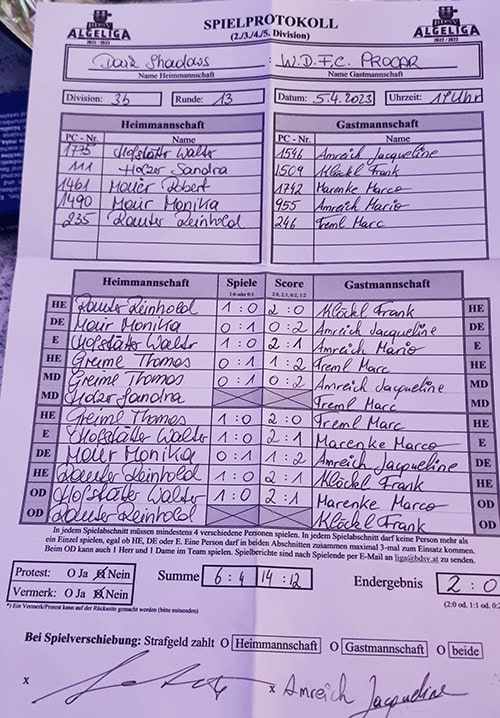 BDSV
ALGELIGA
2022 / 2023
SPIELPROTOKOLL
(2./3./4./5. Division)
BDSV
ALGELIGA
2022 / 2023
Dark Shadows : W.D.F.C. PROCAR
Name Heimmannschaft Name Gastmannschaft
Division: 3b Runde: 13 Datum: 5.4.2023 Uhrzeit: 19 Uhr
Heimmannschaft Gastmannschaft
PC - Nr. Name PC - Nr. Name
1775 Hofstätter Walter 1546 Amreich Jacqueline
111 Holzer Sandra 1509 Klöckl Frank
1461 Maier Robert 1742 Marenke Marco
1490 Mour Monika 955 Amreich Mario
235 Rauter Reinhold 246 Treml Marc
Heimmannschaft Spiele Score Gastmannschaft
1:0 oder 0:1 2:0, 2:1, 0:2, 1:2
HE Rauter Reinhold 1 : 0 2 : 0 Klöckl Frank HE
DE Mour Monika 0 : 1 0 : 2 Amreich Jacqueline DE
E Hofstätter Walter 1 : 0 2 : 1 Amreich Mario E
HE Greime Thomas 0 : 1 1 : 2 Treml Marc HE
MD Greime Thomas 0 : 1 0 : 2 Amreich Jacqueline MD
MD Holzer Sandra Treml Marc MD
HE Greiml Thomas 1 : 0 2 : 0 Treml Marc HE
E Hofstätter Walter 1 : 0 2 : 1 Marenke Marco E
DE Mour Monika 0 : 1 1 : 2 Amreich Jacqueline DE
HE Rauter Reinhold 1 : 0 2 : 1 Klöckl Frank HE
OD Hofstätter Walter 1 : 0 2 : 1 Marenke Marco OD
OD Rauter Reinhold Klöckl Frank OD
In jedem Spielabschnitt müssen mindestens 4 verschiedene Personen spielen. In jedem Spielabschnitt darf keine Person mehr als
ein Einzel spielen, egal ob HE, DE oder E. Eine Person darf in beiden Abschnitten zusammen maximal 3-mal zum Einsatz kommen.
Beim OD kann auch 1 Herr und 1 Dame im Team spielen. Spielberichte sind nach Spielende per E-Mail an liga@bdsv.at zu senden.
Protest: O Ja Nein Summe 6 : 4 14 : 12 Endergebnis 2 : 0
Vermerk: O Ja Nein (2:0 od. 1:1 od. 0:2
*) Ein Vermerk/Protest kann auf der Rückseite gemacht werden (bitte anmelden)
Bei Spielverschiebung: Strafgeld zahlt O Heimmannschaft O Gastmannschaft O beide
x x Amreich Jacqueline